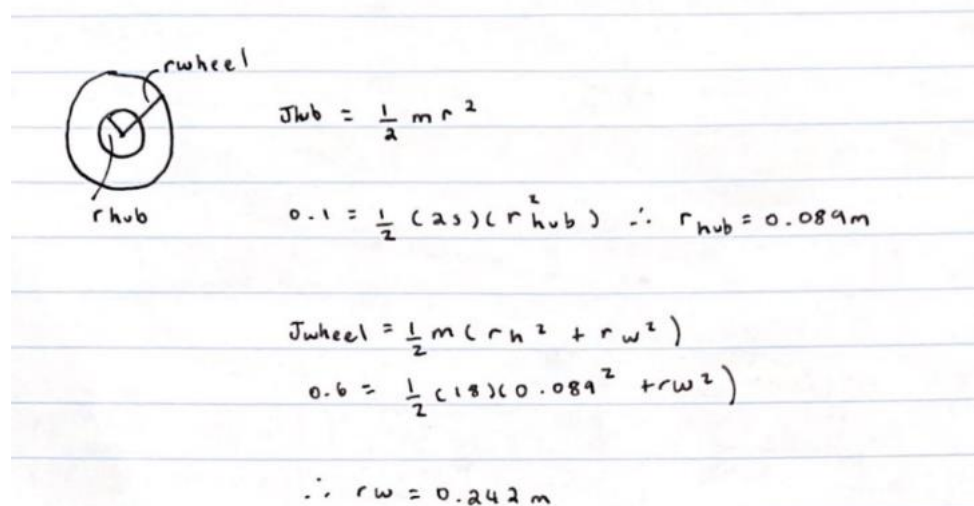 rwheel
Jhub = 1/2 m r²
rhub
0.1 = 1/2 (25)(r²hub) ∴ rhub = 0.089m
Jwheel = 1/2 m ( rh² + rw² )
0.6 = 1/2 (18)(0.089² + rw²)
∴ rw = 0.242 m